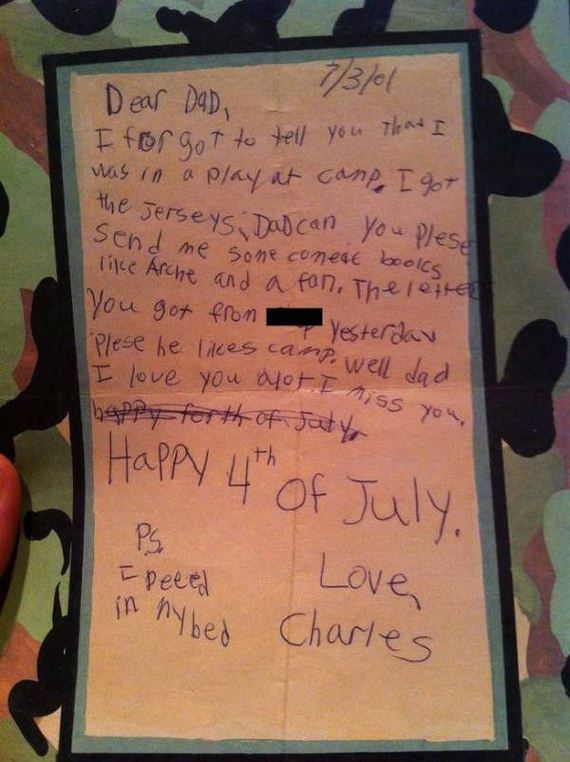 7/3/01
Dear DaD,
I forgot to tell you that I
was in a play at camp. I got
the Jerseys, DaD can you Plese
send me some comeic books
like Arche and a fan. The letter
You got from yesterday
Plese he likes camp. Well dad
I love you alot. I miss you.
happy forth of July.
HaPPy 4th of July.
PS
I peeed
in my bed
Love,
Charles